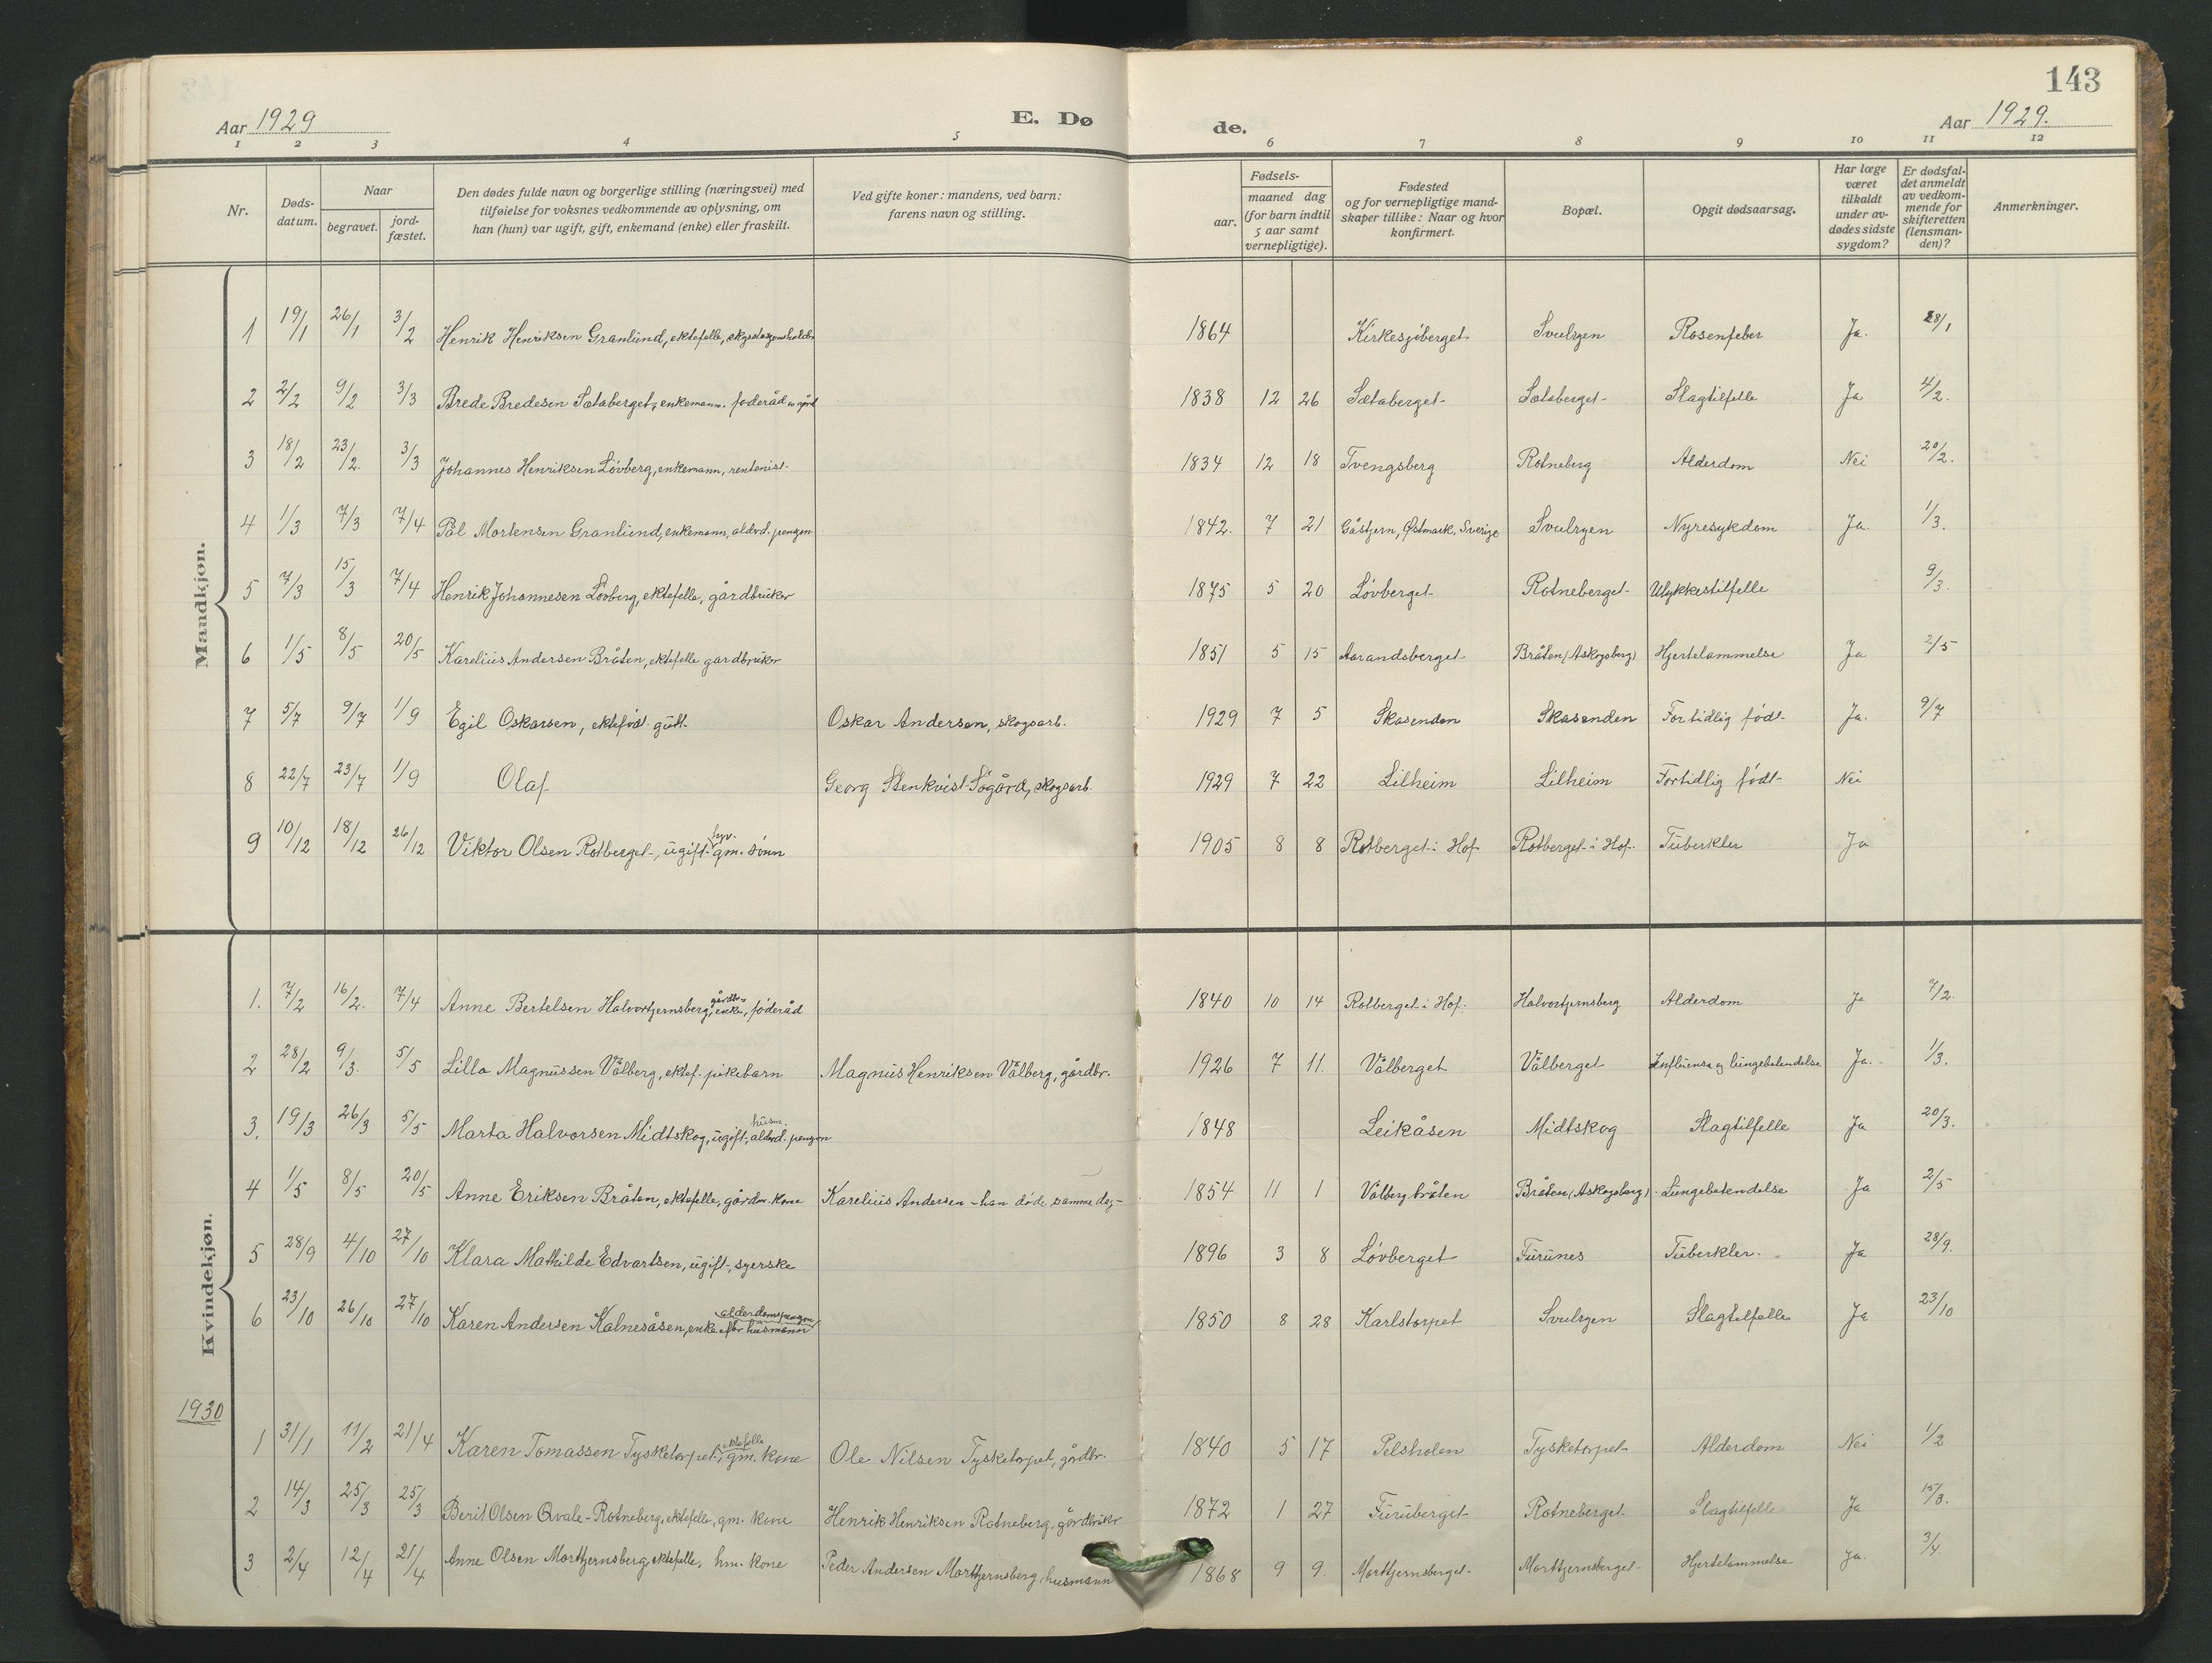 143
Aar 1929
E. Dø
de.
Aar 1929.
1 2 3 4 5 6 7 8 9 10 11 12
Nr.
Døds-
datum.
Naar
begravet.
jord-
fæstet.
Den dødes fulde navn og borgerlige stilling (næringsvei) med
tilføielse for voksnes vedkommende av oplysning, om
han (hun) var ugift, gift, enkemand (enke) eller fraskilt.
Ved gifte koner: mandens, ved barn:
farens navn og stilling.
Fødsels-
aar.
maaned dag
(for barn indtil
5 aar samt
vernepligtige).
Fødested
og for vernepligtige mand-
skaper tillike: Naar og hvor
konfirmert.
Bopæl.
Opgit dødsaarsag.
Har læge
været
tilkaldt
under av-
dødes sidste
sygdom?
Er dødsfal-
det anmeldt
av vedkom-
mende for
skifteretten
(lensman-
den)?
Anmerkninger.
Mandkjøn.
1 19/1 26/1 3/2 Henrik Henriksen Granlund, ektefelle, 1864 Kirkesjøberget Svulryen Rosenfeber Ja. 28/1
2 2/2 9/2 3/3 Brede Bredesen Sætaberget, enkemann. foderåd 1838 12 26 Sætaberget Sætaberget Slagtilfelle Ja 4/2.
3 18/2 23/2. 3/3 Johannes Henriksen Løvberg, enkemann, rentenist. 1834 12 18 Tvengsberg Rotneberg Alderdom Nei 20/2.
4 1/3 7/3 7/4 Pål Mortensen Granlund, enkemann, alderd. pensjon 1842. 7 21 Gåstjern, Østmark, Sverige Svulryen Nyresykdom Ja. 1/3.
5 7/3 15/3 7/4 Henrik Johannesen Løvberg, ektefelle, gårdbruker 1875 5 20 Løvberget Rotneberget Ulykkestilfelle 9/3.
6 1/5 8/5 20/5 Karelius Andersen Bråten, ektefelle gardbruker 1851 5 15 Aarandsberget Bråten (Askogsberg) Hjertelammelse Ja 2/5
7 5/7 9/7 1/9 Egil Oskarsen, ektefød. gutt. Oskar Andersen, skogsarb. 1929 7 5 Skasenden Skasenden For tidlig født Ja. 9/7
8 22/7 23/7 1/9 Olaf Georg Stenkvist Søgård, skogsarb. 1929 7 22 Lilheim Lilheim Fortidlig født Nei
9 10/12 18/12 26/12 Viktor Olsen Rotberget, ugift gm. sønn 1905 8 8 Rotberget i Hof Rotberget i Hof. Tuberkler Ja
Kvindekjøn.
1. 7/2 16/2. 7/4 Anne Bertelsen Halvortjernsberg, gårdbr. enke, føderåd 1840 10 14 Rotberget i Hof. Halvortjernsberg Alderdom Ja 7/2.
2 28/2 9/3. 5/5 Lilla Magnussen Vålberg, ektef. pikebarn Magnus Henriksen Vålberg, gårdbr. 1926 7 11. Vålberget Vålberget Influensa og lungebetendelse Ja. 1/3.
3. 19/3 26/3 5/5 Marta Halvorsen Midtskog, ugift, husm. alderd. pensjon 1848 Leikåsen Midtskog Slagtilfelle Ja 20/3.
4 1/5 8/5 20/5 Anne Eriksen Bråten, ektefelle, gårdm. kone Karelius Andersen - han døde samme dag - 1854 11 1 Vålbergbråten Bråten (Askogsberg) Lungebetendelse Ja 2/5
5 28/9 4/10 27/10 Klara Mathilde Edvartsen, ugift, syerske 1896 3 8 Løvberget Furunes Tuberkler. Ja 28/9.
6 23/10 26/10 27/10 Karen Andersen Kalnesåsen, enke efter husmann alderdomspensjon 1850 8 28 Karlstorpet Svulryen Slagtilfelle Ja 23/10
1930
1 31/1 11/2 21/4 Karen Tomassen Tysketorpet, ektefelle gm. kone Ole Nilsen Tysketorpet, gårdbr. 1840 5 17 Pelsholen Tysketorpet Alderdom Nei 1/2
2 14/3 25/3 25/3 Berit Olsen Qvale-Rotneberg, ektefelle, gm. kone Henrik Henriksen Rotneberg, gårdbruker 1872 1 27 Furuberget Rotneberget Slagtilfelle Ja 15/3.
3 2/4 12/4 21/4 Anne Olsen Morttjernsberg, ektefelle, hm. kone Peder Andersen Morttjernsberg husmann 1868 9 9. Morttjernsberget Morttjernsberget Hjertelammelse Ja. 3/4.